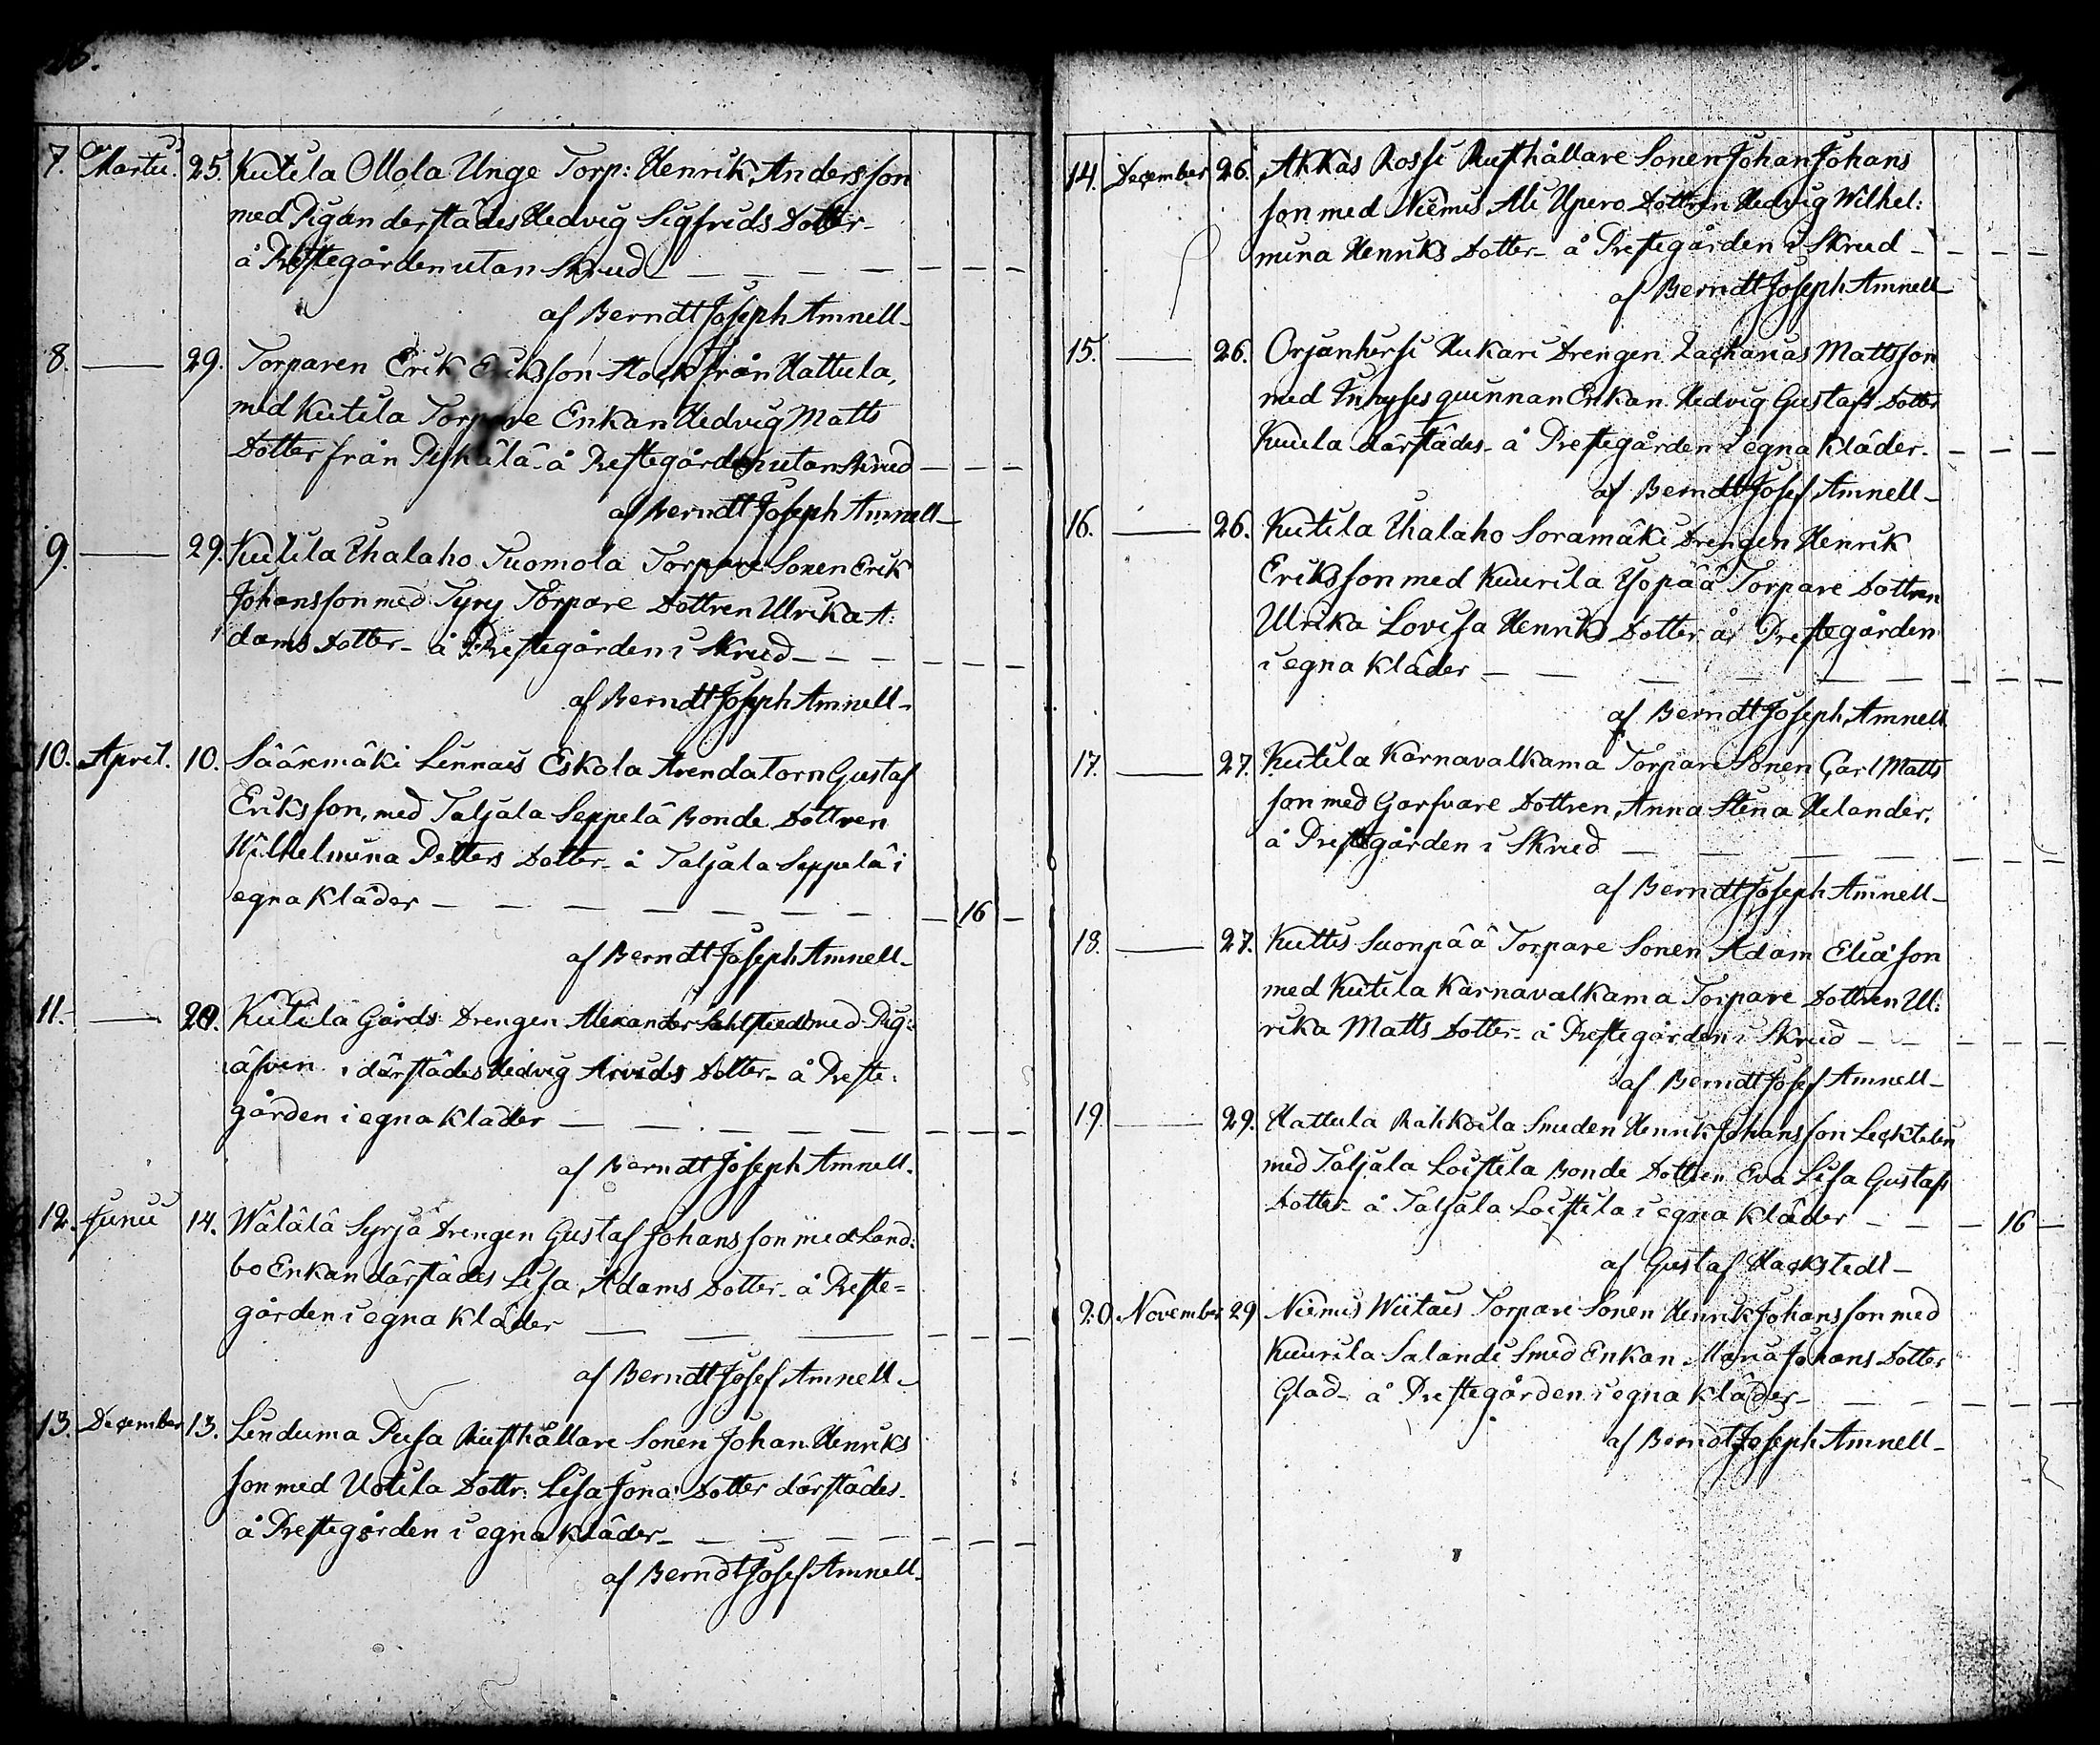 7. Martii. 25. Kutila Ollola Unge Torp: Henrik Andersson
med Pigan derstädes Hedvig Sigfrids Dotter –
å Prestegården utan Skrud – – – – – – –
af Berndt Joseph Amnell –
8. — 29. Torparen Erik Eriksson från Hattula,
med Kutila Torpare Enkan Hedvig Matts
Dotter från å Prestegården utan Skrud – – –
af Berndt Joseph Amnell –
9. — 29. Kutila Uhalaho Tuomola Torpare Sonen Erik
Johansson med Tyry Torpare Dottren Ulrika A:
dams Dotter – å Prestegården i Skrud – – – – – –
af Berndt Joseph Amnell –
10. April. 10. Sääxmäki Linnais Eskola Arendatorn Gustaf
Eriksson, med Taljala Seppelä Bonde Dottren
Wilhelmina Petters Dotter – å Taljala Seppelä i
egna Kläder – – – – – – – – 16 –
af Berndt Joseph Amnell –
11. — Kutila Gårds Drengen Alexander med Pig:
i därstädes Hedvig Arvids Dotter – å Preste:
gården i egna Kläder – – – – – – – –
af Berndt Joseph Amnell.
12. Junii 14. Wälälä Syrjä Drengen Gustaf Johansson med Land:
bo Enkan därstädes Lisa Adams Dotter – å Preste=
gården i egna Kläder – – – – – –
af Berndt Josef Amnell –
13. December 13. Linduma Pusa Rusthållare Sonen Johan Henriks
son med Uotila Dottr: Lisa Jona Dotter därstädes –
å Prestegården i egna Kläder – – – – – – –
af Berndt Josef Amnell –
14. December 26. Akkas Rossi Rusthållare Sonen Johan Johans
son med Niemis Ali Upero Dottren Hedvig Wilhel:
mina Henriks Dotter – å Prestegården i Skrud – – – –
af Berndt Joseph Amnell –
15. — 26. Orjanhirsi Hukari Drengen Zacharias Mattsson
med Inhyses qvinnan Enkan Hedvig Gustafs Dotter
därstädes – å Prestegården i egna Kläder. – – –
af Berndt Josef Amnell –
16. — 26. Kutila Uhalaho Soramäki Drengen Henrik
Eriksson med Kuurila Torpare Dottren
Ulrika Lovisa Henriks Dotter å Prestegården
i egna Kläder – – – – – – – –
af Berndt Joseph Amnell
17. — 27. Kutila Karnavalkama Torpare Sonen Carl Matts
son med Garfvare Dottren, Anna Stina Helander,
å Prestegården i Skrud – – – – – – –
af Berndt Joseph Amnell –
18. — 27. Kuttis Suonpää Torpare Sonen Adam Eliasson
med Kutila Karnavalkama Torpare Dottren Ul:
rika Matts Dotter – å Prestegården i Skrud – – – – –
af Berndt Josef Amnell –
19. — 29. Hattula Smeden Henrik Johansson
med Taljala Loistila Bonde Dottren Eva Lisa Gustafs
Dotter – å Taljala Loistila i egna Kläder – – – 16 –
af Gustaf Hackstedt –
20. November 29 Niemis Wiitais Torpare Sonen Henrik Johansson med
Kuurila Salandi Smed Enkan Maria Johans Dotter
Glad – å Prestegården i egna Kläder – – – – – –
af Berndt Joseph Amnell –